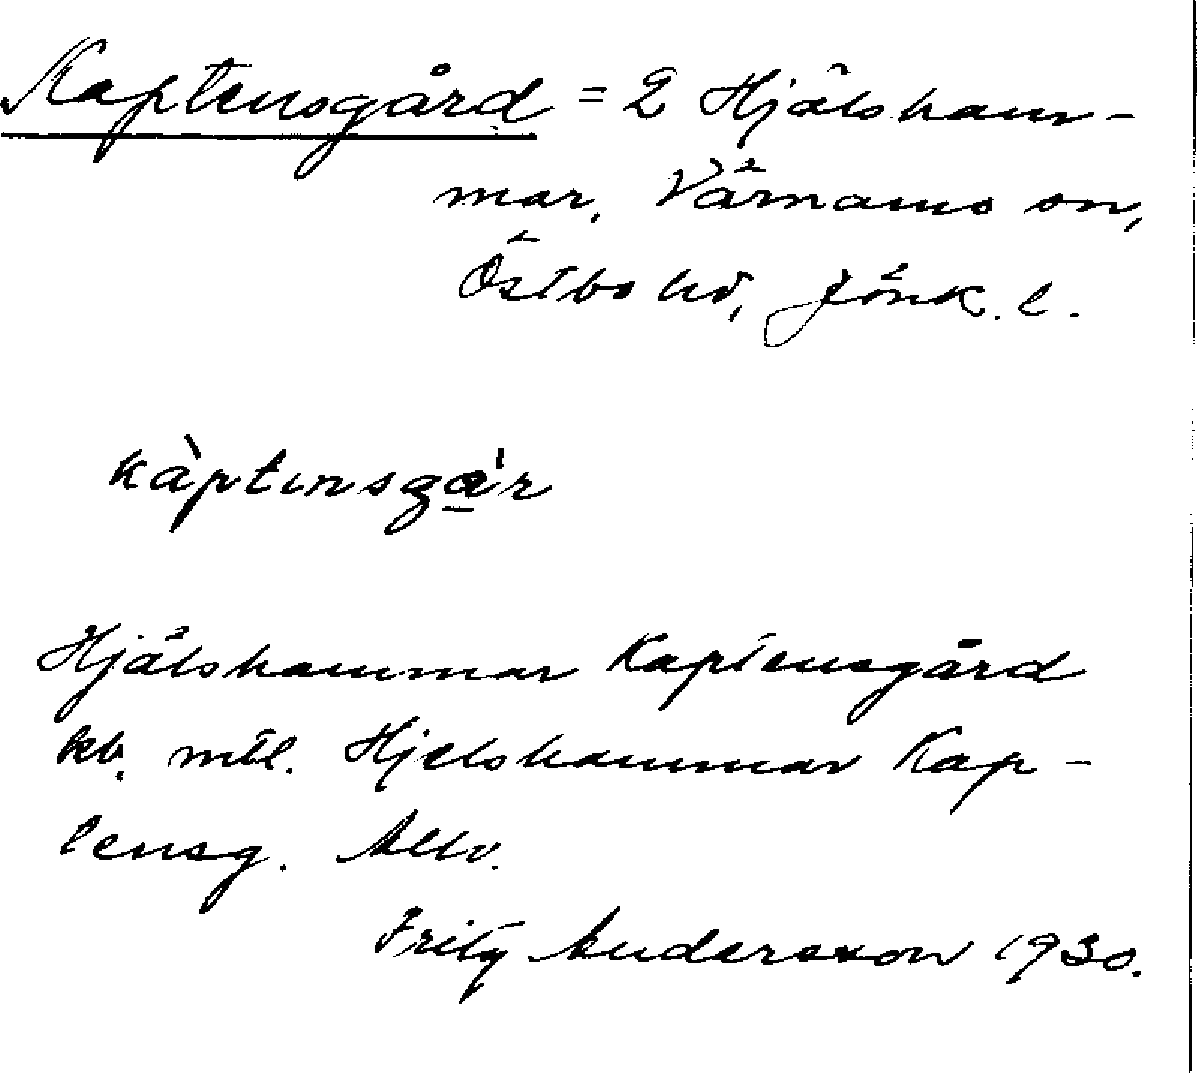 Kaptensgård = 2 Hjälsham-
mar, Värnamo sn,
Östbo hd, Jönk. l.
kàptensga̱'r
Hjälshammar Kaptensgård
kb. mtl. Hjelshammar Kap-
tensg.
Fritz Andersson 1930.